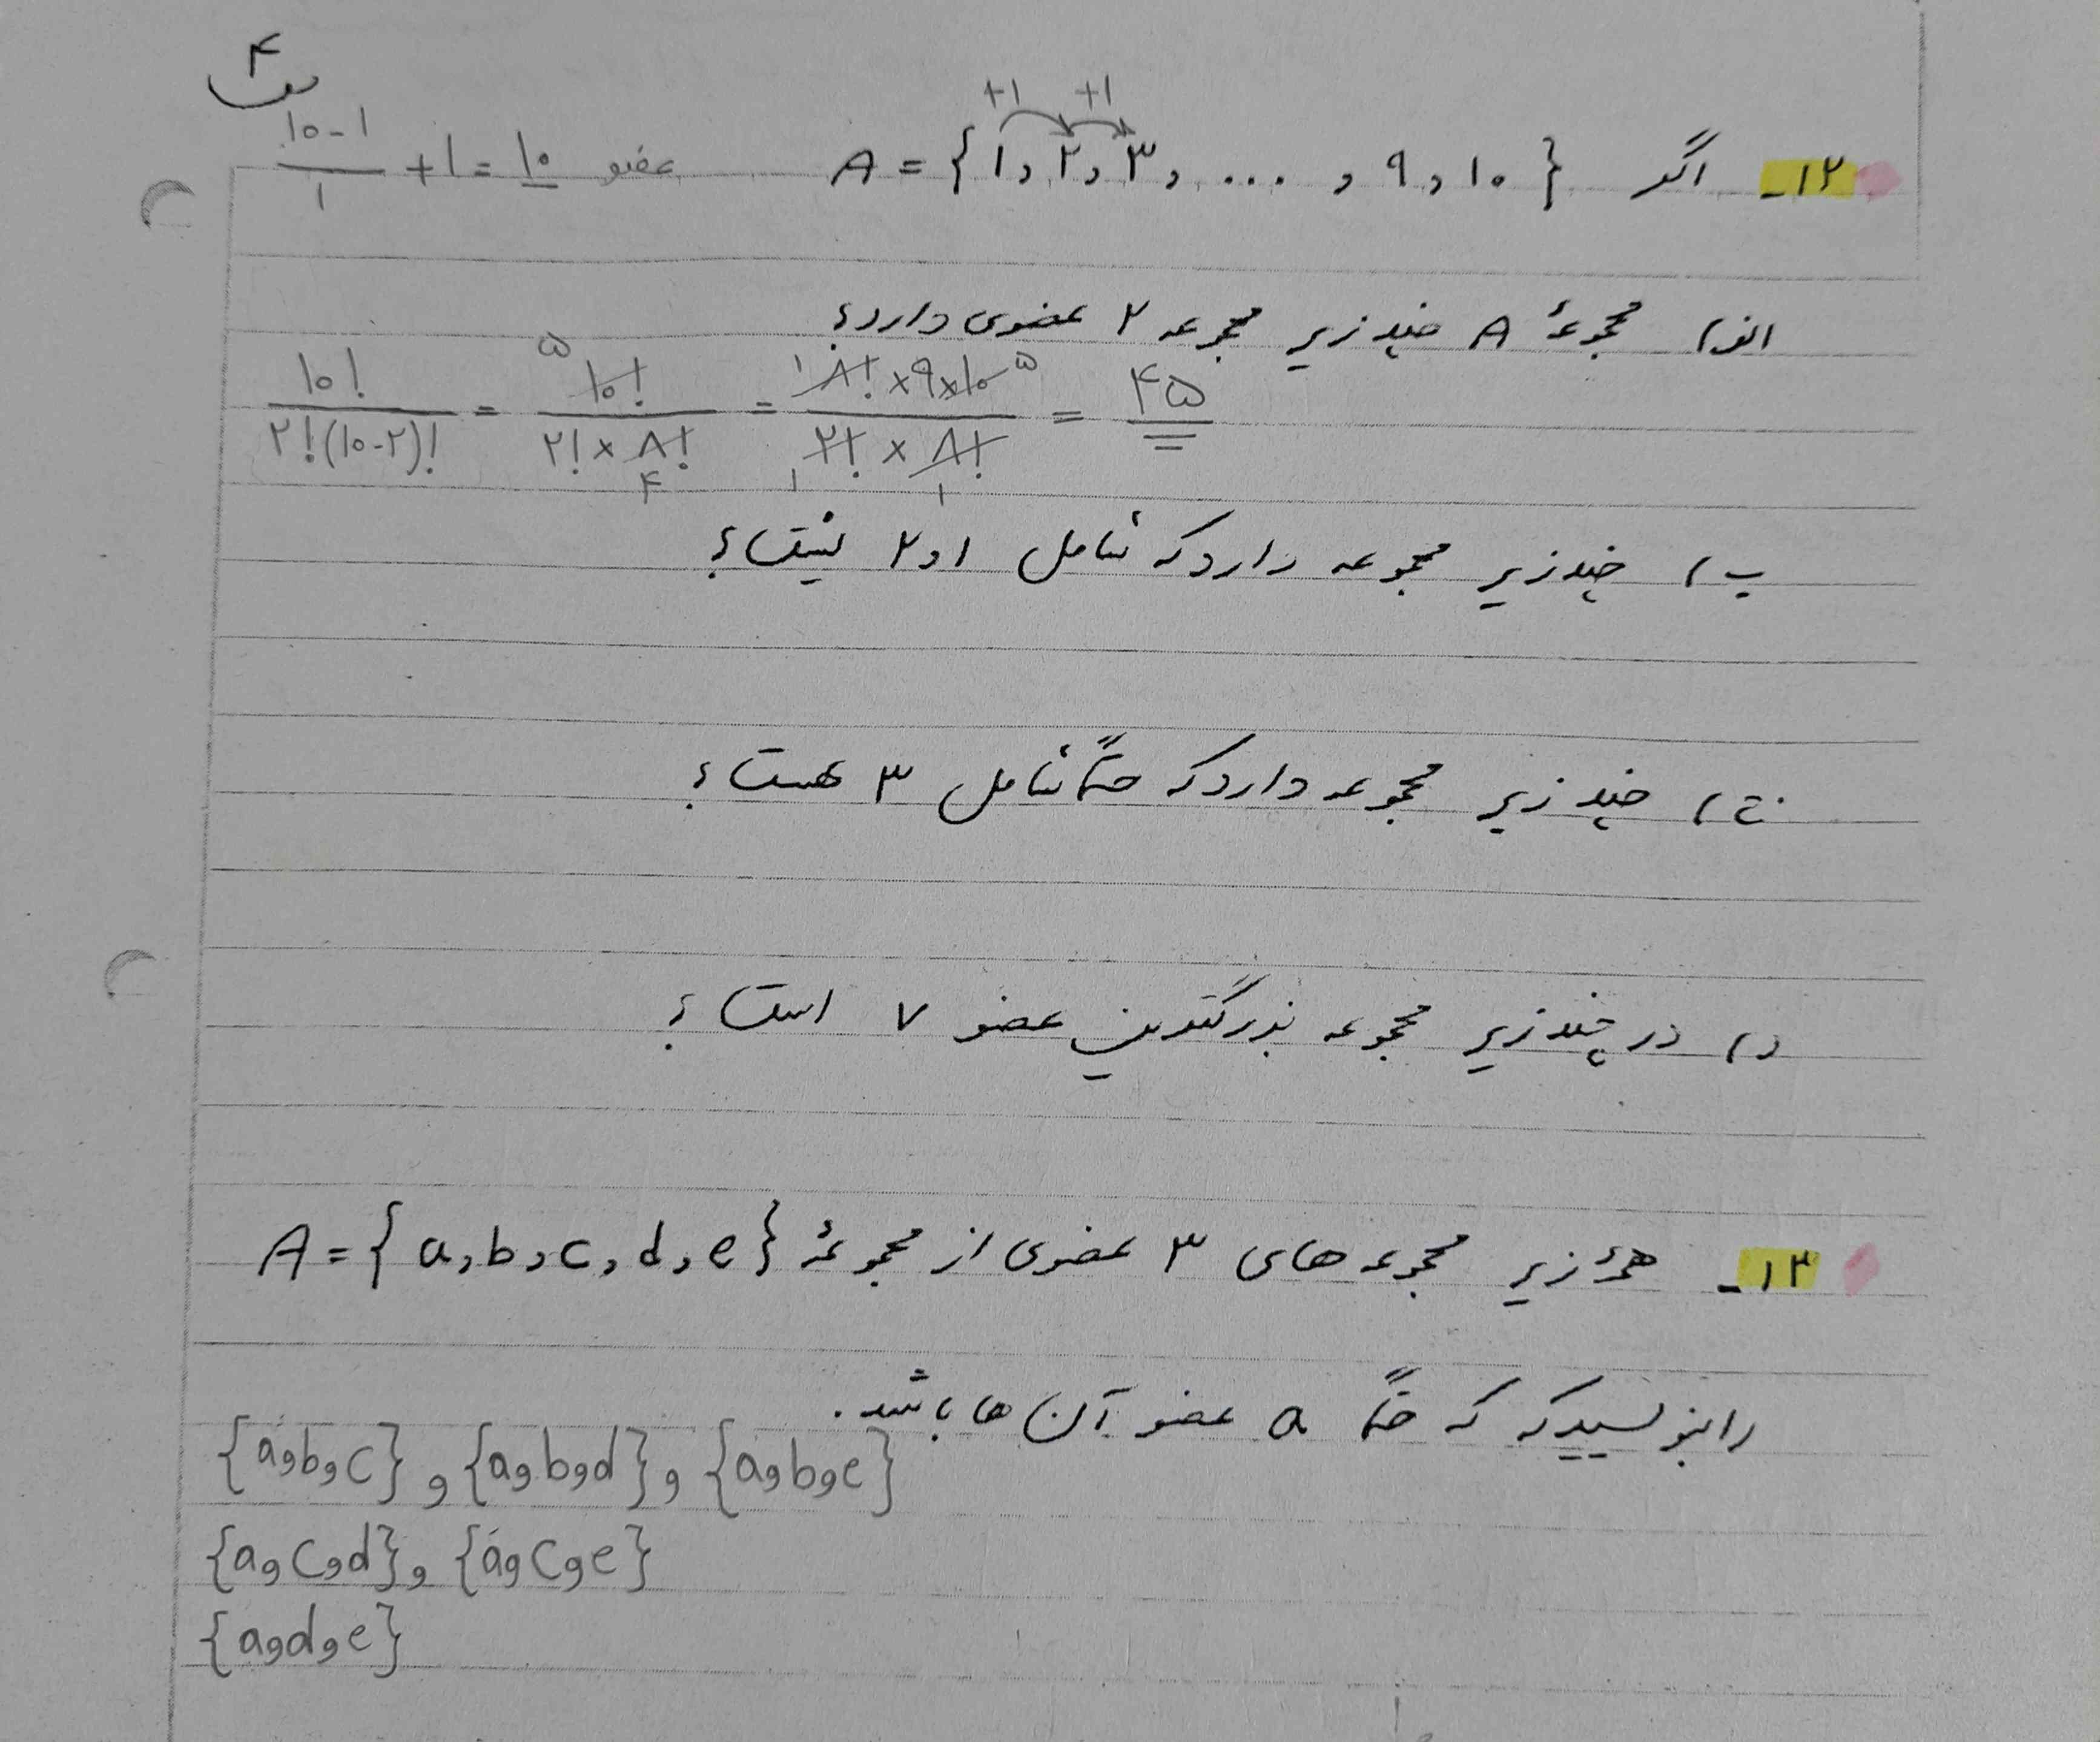 ۴
۱۲ـ اگر A = {۱, ۲, ۳, ... , ۹, ۱۰}
+۱ +۱
(۱۰-۱)/۱ + ۱ = ۱۰ عضو
الف) مجموعهٔ A چند زیر مجموعه ۲ عضوی دارد؟
۱۰!/(۲!(۱۰-۲)!) = ۱۰!/(۲!×۸!) = (۸!×۹×۱۰)/(۲!×۸!) = ۴۵
ب) چند زیر مجموعه دارد که شامل ۱ و ۲ نیست؟
ج) چند زیر مجموعه دارد که حتماً شامل ۳ هست؟
د) در چند زیر مجموعه بزرگترین عضو ۷ است؟
۱۳ـ همهٔ زیر مجموعه های ۳ عضوی از مجموعهٔ A = {a, b, c, d, e}
را بنویسید که که حتماً a عضو آن ها باشد.
{a,b,c} , {a,b,d} , {a,b,e}
{a,c,d} , {a,c,e}
{a,d,e}